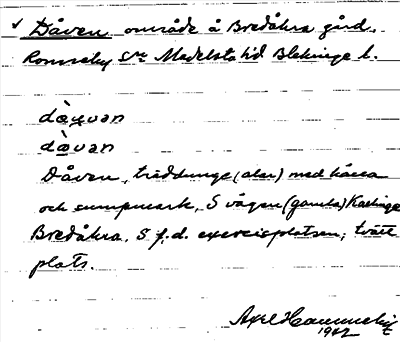 Dåven område å Bredåkra gård,
Ronneby Sn Medelsta hd Blekinge l.
dæ̀ɥvan
dàvan
Dåven, träddunge (alar) med kässa
och sumpmark, S vägen (gamla) Kallinge
Bredåkra, S f.d. exercisplatsen; tvätt
plats.
Axel
1942